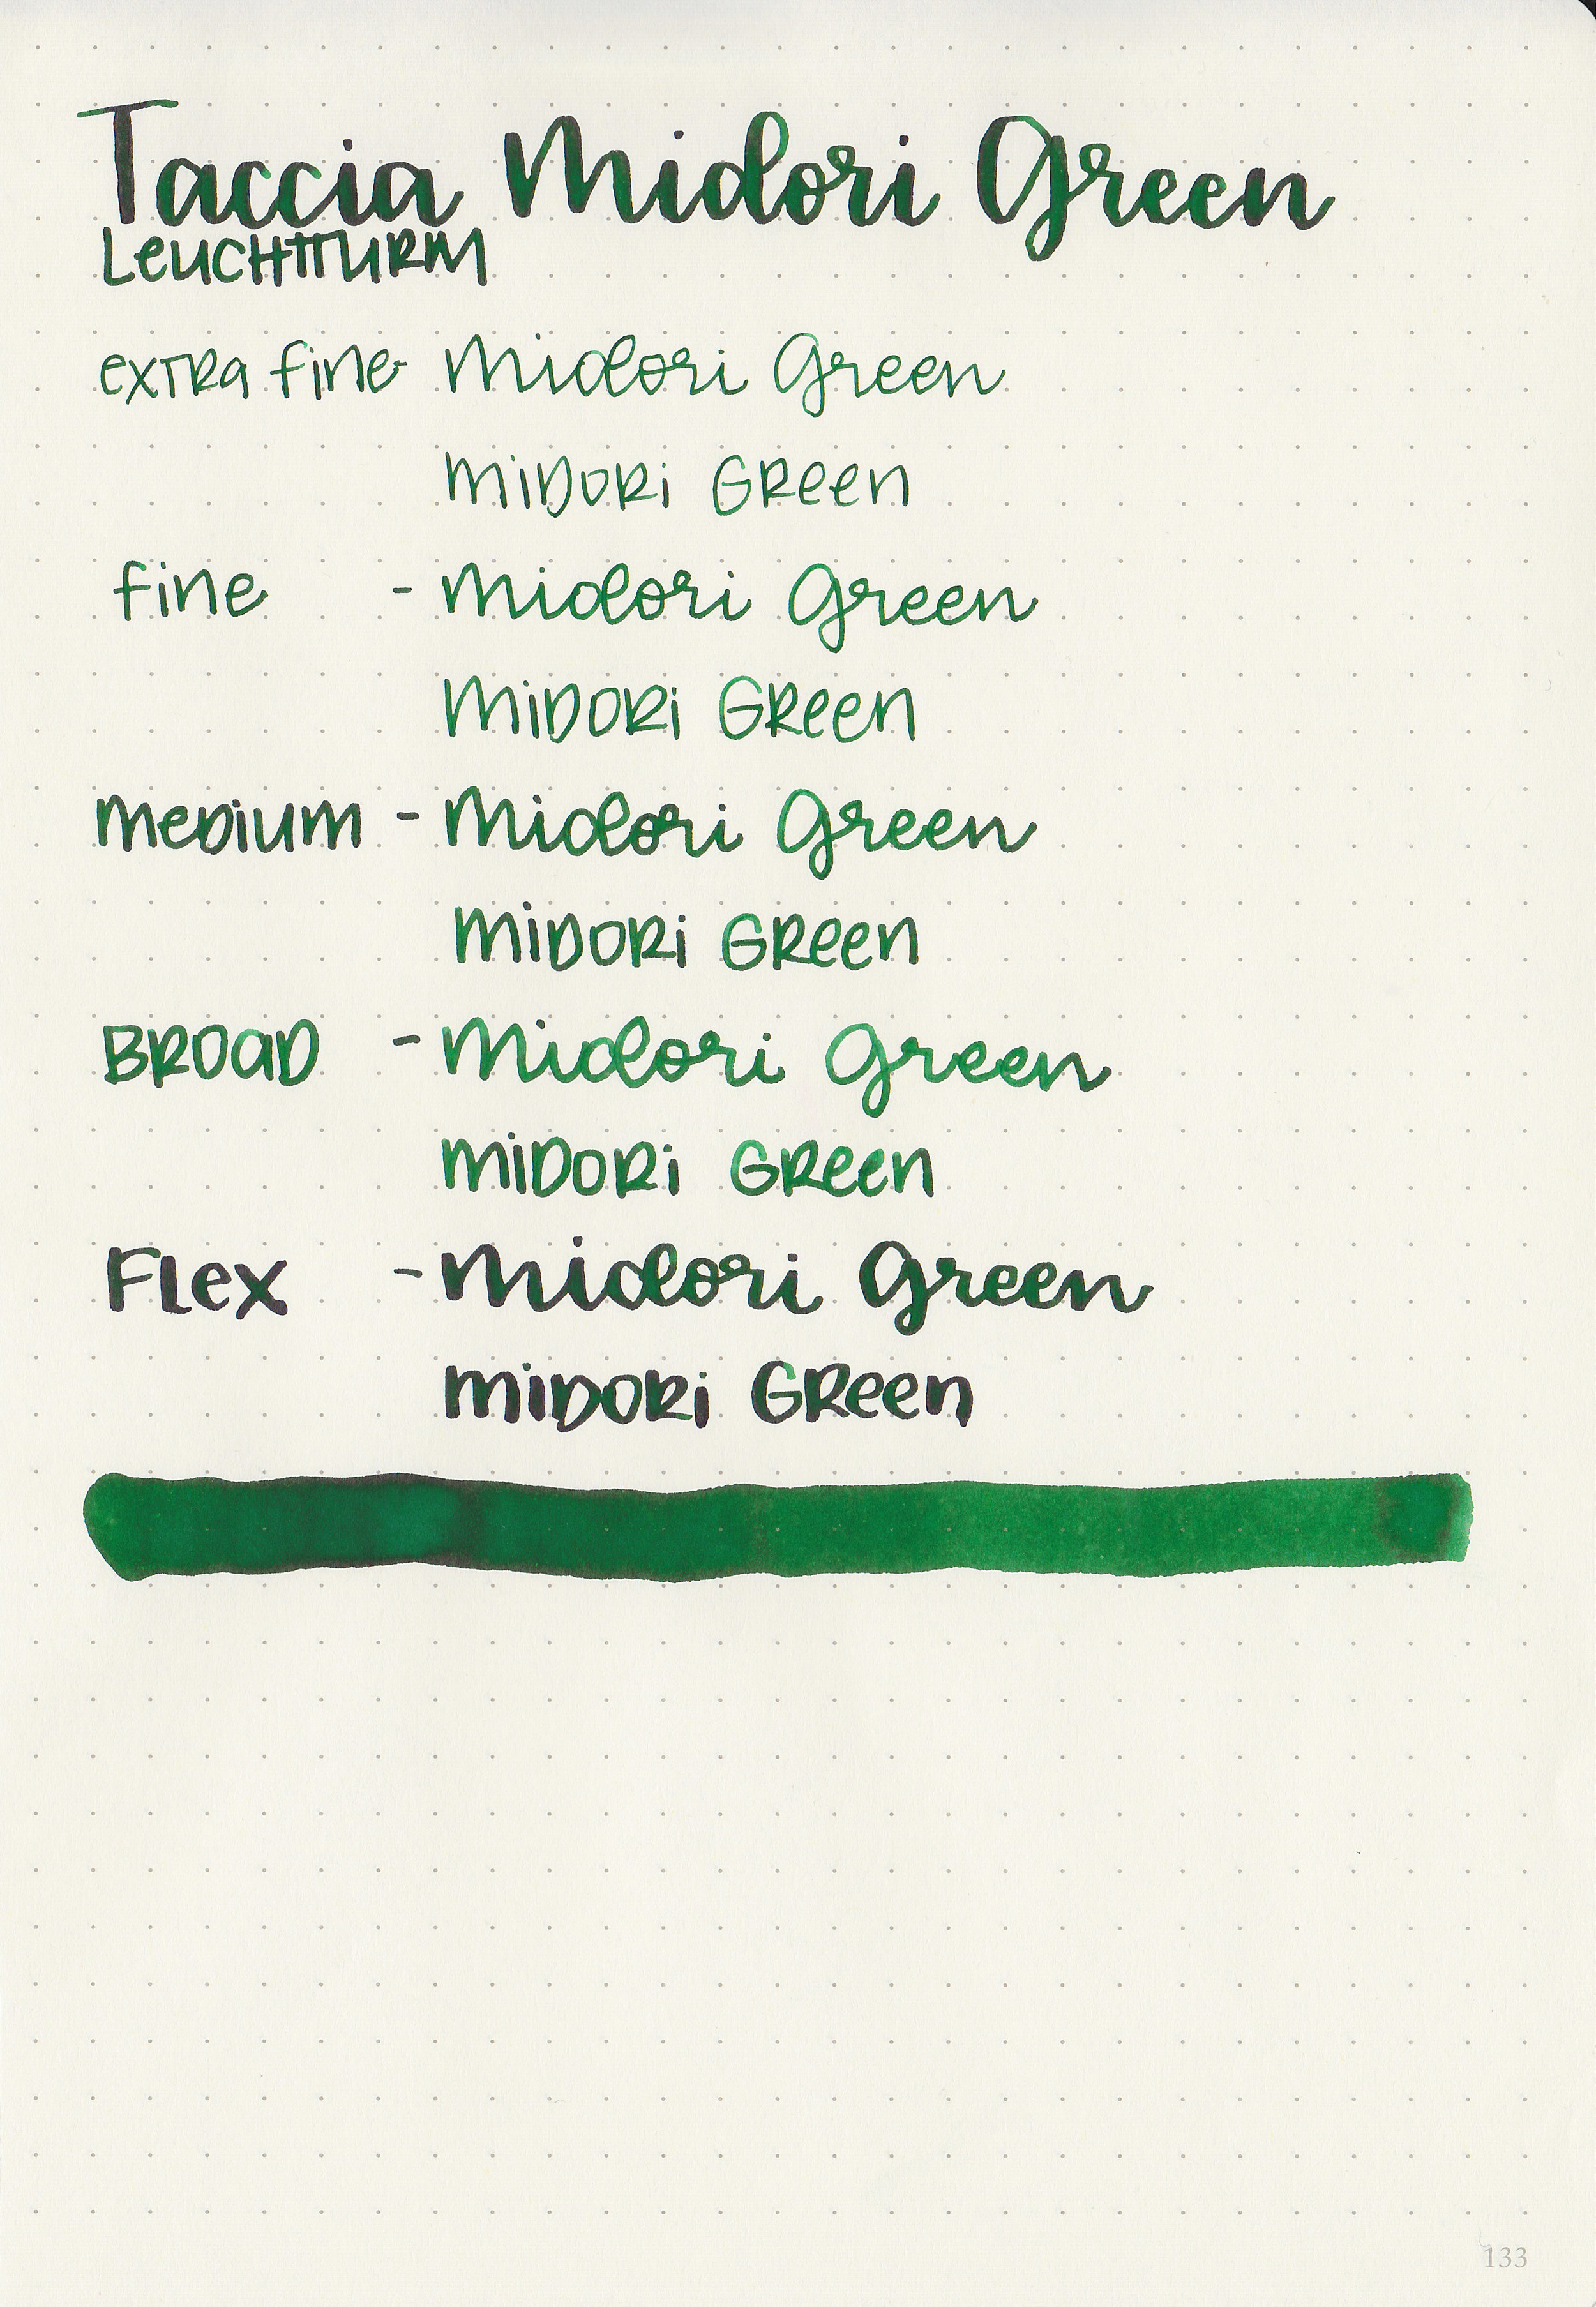 Taccia Midori Green
Leuchtturm
extra fine- Midori Green
Midori Green
fine - Midori Green
Midori Green
Medium - Midori Green
Midori Green
Broad - Midori Green
Midori Green
Flex - Midori Green
Midori Green
133